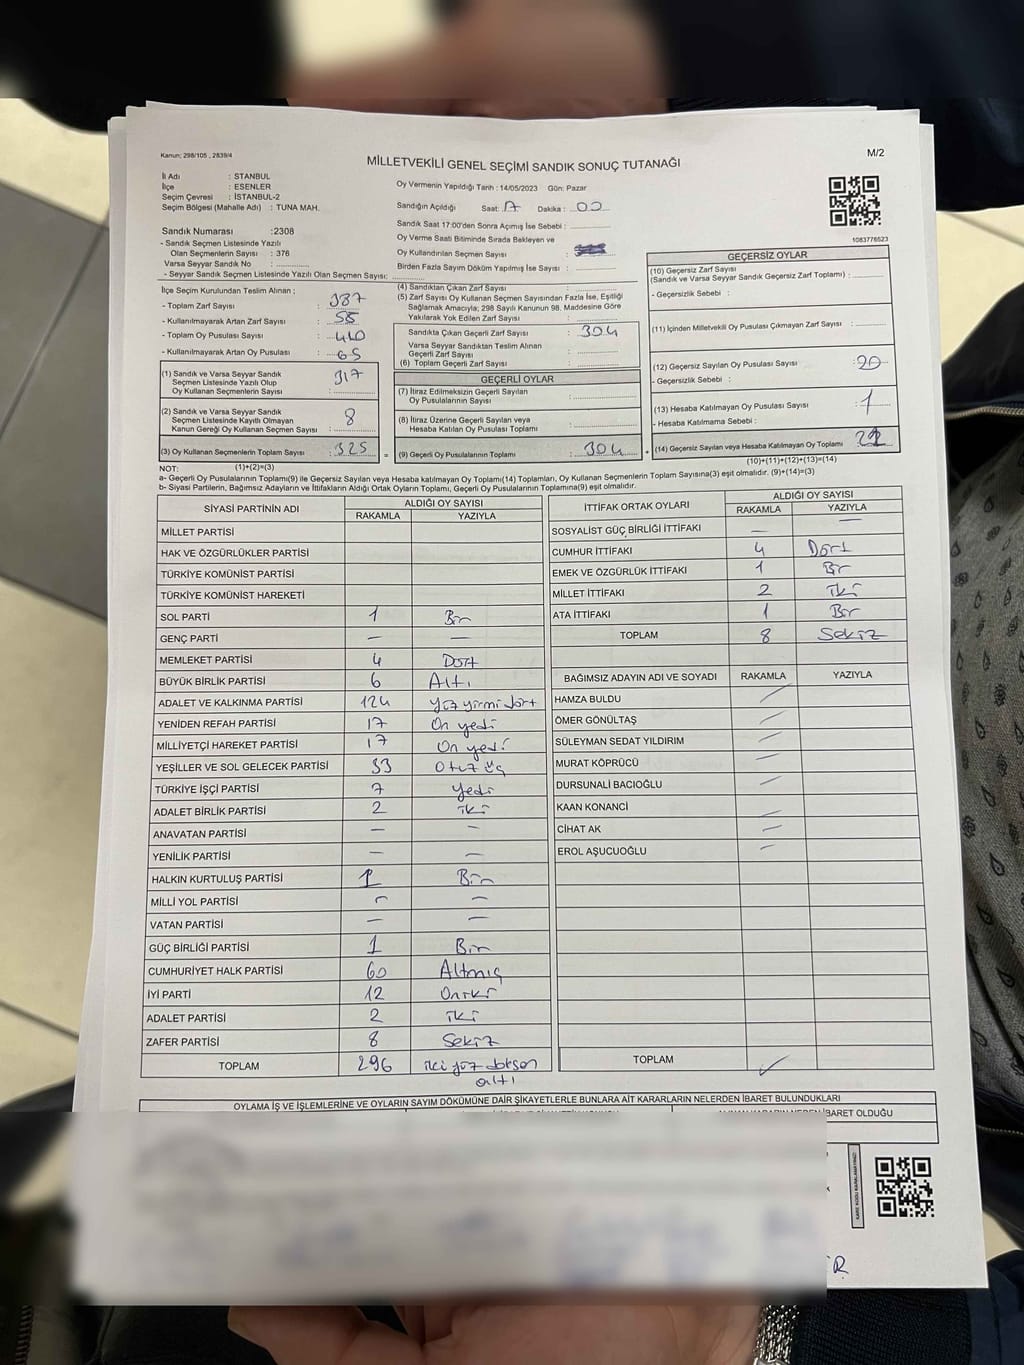 Kanun; 298/105 , 2839/4
M/2
MİLLETVEKİLİ GENEL SEÇİMİ SANDIK SONUÇ TUTANAĞI
İl Adı : STANBUL
İlçe : ESENLER
Seçim Çevresi : İSTANBUL-2
Seçim Bölgesi (Mahalle Adı) : TUNA MAH.
Sandık Numarası :2308
- Sandık Seçmen Listesinde Yazılı
Olan Seçmenlerin Sayısı : 376
Varsa Seyyar Sandık No
- Seyyar Sandık Seçmen Listesinde Yazılı Olan Seçmen Sayısı:
Oy Vermenin Yapıldığı Tarih : 14/05/2023 Gün: Pazar
Sandığın Açıldığı Saat: Dakika : 00
Sandık Saat 17:00'den Sonra Açımış İse Sebebi :
Oy Verme Saati Bitiminde Sırada Bekleyen ve
Oy Kullandırılan Seçmen Sayısı :
Birden Fazla Sayım Döküm Yapılmış İse Sayısı :
1083776523
İlçe Seçim Kurulundan Teslim Alınan ;
- Toplam Zarf Sayısı : 387
- Kullanılmayarak Artan Zarf Sayısı : 55
- Toplam Oy Pusulası Sayısı : 440
- Kullanılmayarak Artan Oy Pusulası : 65
(1) Sandık ve Varsa Seyyar Sandık
Seçmen Listesinde Yazılı Olup
Oy Kullanan Seçmenlerin Sayısı : 317
(2) Sandık ve Varsa Seyyar Sandık
Seçmen Listesinde Kayıtlı Olmayan
Kanun Gereği Oy Kullanan Seçmen Sayısı : 8
(3) Oy Kullanan Seçmenlerin Toplam Sayısı : 325
(4) Sandıktan Çıkan Zarf Sayısı :
(5) Zarf Sayısı Oy Kullanan Seçmen Sayısından Fazla İse, Eşitliği
Sağlamak Amacıyla; 298 Sayılı Kanunun 98. Maddesine Göre
Yakılarak Yok Edilen Zarf Sayısı :
Sandıkta Çıkan Geçerli Zarf Sayısı : 304
Varsa Seyyar Sandıktan Teslim Alınan
Geçerli Zarf Sayısı :
(6) Toplam Geçerli Zarf Sayısı :
GEÇERLİ OYLAR
(7) İtiraz Edilmeksizin Geçerli Sayılan
Oy Pusulalarının Sayısı :
(8) İtiraz Üzerine Geçerli Sayılan veya
Hesaba Katılan Oy Pusulası Toplamı :
= (9) Geçerli Oy Pusulalarının Toplamı : 304 +
GEÇERSİZ OYLAR
(10) Geçersiz Zarf Sayısı
(Sandık ve Varsa Seyyar Sandık Geçersiz Zarf Toplamı) :
- Geçersizlik Sebebi :
(11) İçinden Milletvekili Oy Pusulası Çıkmayan Zarf Sayısı :
(12) Geçersiz Sayılan Oy Pusulası Sayısı : 20
- Geçersizlik Sebebi :
(13) Hesaba Katılmayan Oy Pusulası Sayısı : 1
- Hesaba Katılmama Sebebi :
(14) Geçersiz Sayılan veya Hesaba Katılmayan Oy Toplamı :
NOT: (1)+(2)=(3)
(10)+(11)+(12)+(13)=(14)
a- Geçerli Oy Pusulalarının Toplamı(9) ile Geçersiz Sayılan veya Hesaba katılmayan Oy Toplamı(14) Toplamları, Oy Kullanan Seçmenlerin Toplam Sayısına(3) eşit olmalıdır. (9)+(14)=(3)
b- Siyasi Partilerin, Bağımsız Adayların ve İttifakların Aldığı Ortak Oyların Toplamı, Geçerli Oy Pusulalarının Toplamına(9) eşit olmalıdır.
SİYASİ PARTİNİN ADI ALDIĞI OY SAYISI
RAKAMLA YAZIYLA
MİLLET PARTİSİ
HAK VE ÖZGÜRLÜKLER PARTİSİ
TÜRKİYE KOMÜNİST PARTİSİ
TÜRKİYE KOMÜNİST HAREKETİ
SOL PARTİ 1 Bir
GENÇ PARTİ — —
MEMLEKET PARTİSİ 4 Dört
BÜYÜK BİRLİK PARTİSİ 6 Altı
ADALET VE KALKINMA PARTİSİ 124 yüz yirmi dört
YENİDEN REFAH PARTİSİ 17 On yedi
MİLLİYETÇİ HAREKET PARTİSİ 17 On yedi
YEŞİLLER VE SOL GELECEK PARTİSİ 33 Otuz üç
TÜRKİYE İŞÇİ PARTİSİ 7 yedi
ADALET BİRLİK PARTİSİ 2 iki
ANAVATAN PARTİSİ — —
YENİLİK PARTİSİ — —
HALKIN KURTULUŞ PARTİSİ 1 Bir
MİLLİ YOL PARTİSİ — —
VATAN PARTİSİ — —
GÜÇ BİRLİĞİ PARTİSİ 1 Bir
CUMHURİYET HALK PARTİSİ 60 Altmış
İYİ PARTİ 12 Oniki
ADALET PARTİSİ 2 iki
ZAFER PARTİSİ 8 Sekiz
TOPLAM 296 iki yüz doksan altı
İTTİFAK ORTAK OYLARI ALDIĞI OY SAYISI
RAKAMLA YAZIYLA
SOSYALİST GÜÇ BİRLİĞİ İTTİFAKI — —
CUMHUR İTTİFAKI 4 Dört
EMEK VE ÖZGÜRLÜK İTTİFAKI 1 Bir
MİLLET İTTİFAKI 2 iki
ATA İTTİFAKI 1 Bir
TOPLAM 8 Sekiz
BAĞIMSIZ ADAYIN ADI VE SOYADI RAKAMLA YAZIYLA
HAMZA BULDU
ÖMER GÖNÜLTAŞ
SÜLEYMAN SEDAT YILDIRIM
MURAT KÖPRÜCÜ
DURSUNALİ BACIOĞLU
KAAN KONANCİ
CİHAT AK
EROL AŞUCUOĞLU
TOPLAM
OYLAMA İŞ VE İŞLEMLERİNE VE OYLARIN SAYIM DÖKÜMÜNE DAİR ŞİKAYETLERLE BUNLARA AİT KARARLARIN NELERDEN İBARET BULUNDUKLARI
İBARET OLDUĞU